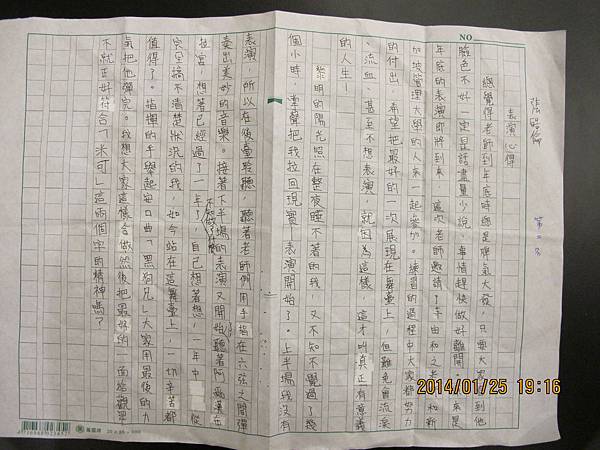 NO.
第二名
表演心得
總覺得老師到年底時總是脾氣大發,只要大家到他
臉色不好一定是話盡量少說、事情趕快做好離開。原來是
年底的表演即將到來,這次老師邀請了老師和新
加坡管理大學的人來一起參加。練習的過程中大家都努力
的付出,希望把最好的一次展現在舞臺上,但難免會流淚
、流血、甚至不想表演,就因為這樣,這才叫真正有意義
的人生!
黎明的陽光照在整夜睡不著的我,又不知不覺過了幾
個小時,掌聲把我拉回現實—表演開始了。上半場我沒有
表演,所以在後臺聆聽,聽著老師們用手指在六弦之間彈
奏出美妙的音樂。接著下半場的表演又開始,聽著阿
想著已經過了一年了,自己想著想,一年中從
完全搞不清楚狀況的我,如今站在這舞臺上,一切辛苦都
值得了。指揮的手舉起安口曲「黑狗兄」大家用最後的力
氣把他彈完。我想大家這樣合做然後把最好的一面給觀眾
不就正好符合「米可」這兩個字的精神嗎?
2014/01/25 19:16